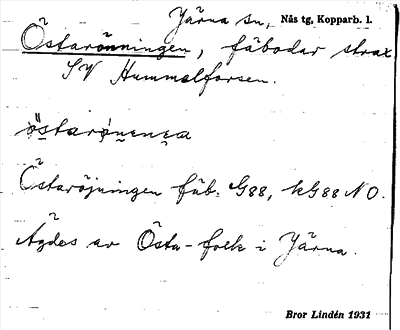 Järna sn, Nås tg, Kopparb. l.
Östarönningen, fäbodar strax
SV Hummelforsen.
östarönena
Östaröjningen fäb. G88, kG88 NO.
Ägdes av Östa-folk i Järna.
Bror Lindén 1931